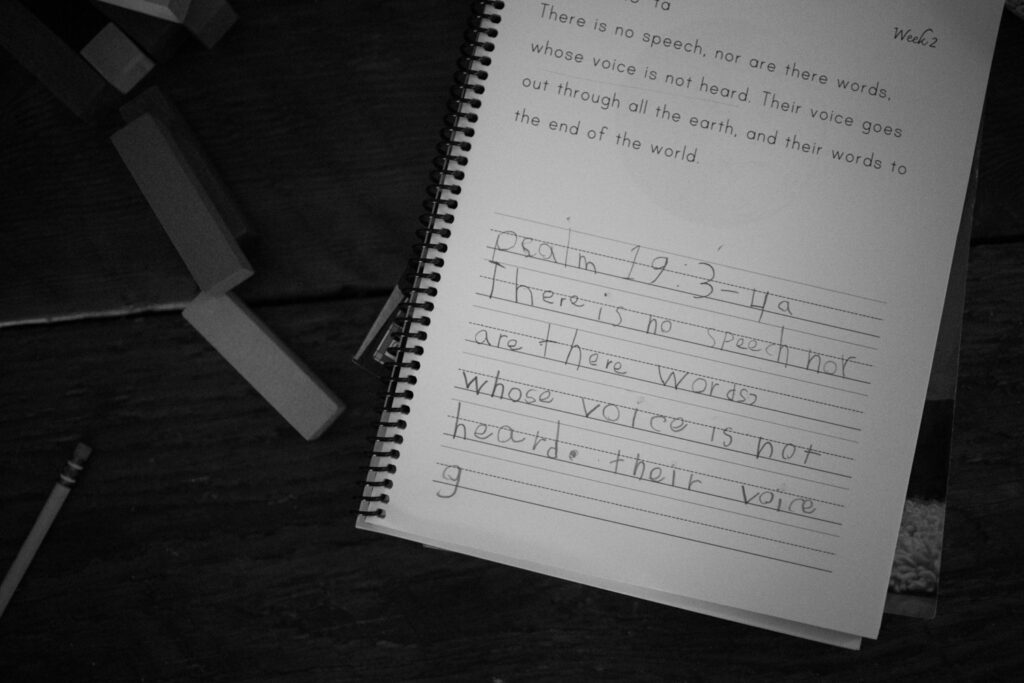 Week 2
There is no speech, nor are there words,
whose voice is not heard. Their voice goes
out through all the earth, and their words to
the end of the world.
psalm 19:3-4a
There is no speech nor
are there words,
whose voice is not
heard. their voice
g